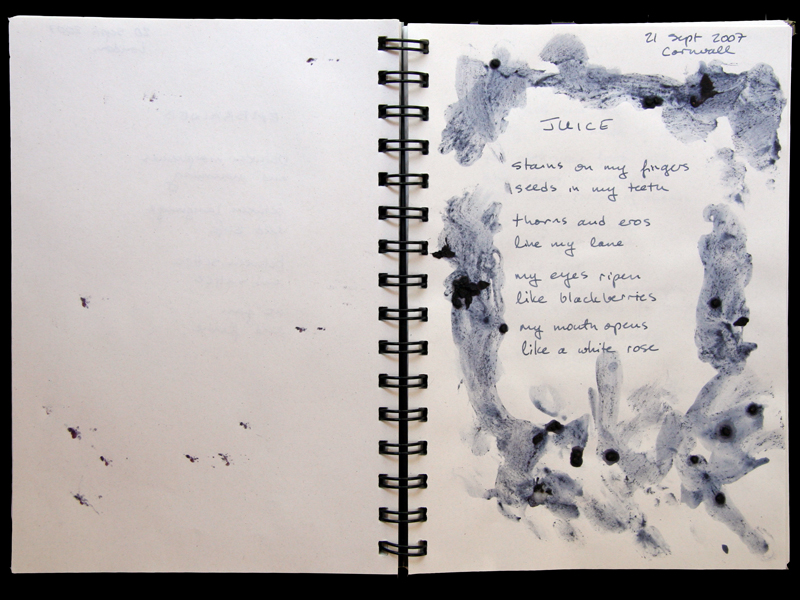 21 Sept 2007
Cornwall
JUICE
stains on my fingers
seeds in my teeth
thorns and eros
line my lane
my eyes ripen
like blackberries
my mouth opens
like a white rose